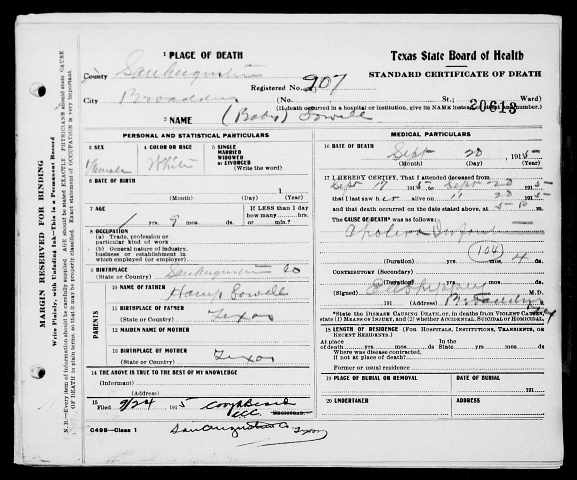 1 PLACE OF DEATH
Texas State Board of Health
STANDARD CERTIFICATE OF DEATH
County San Augustine
Registered No. 207
City Broaddus
(No. St.; Ward)
20613
(If death occurred in a hospital or institution, give its NAME instead of street and number.)
2 NAME (Baby) Sowell
PERSONAL AND STATISTICAL PARTICULARS
3 SEX
Female
4 COLOR OR RACE
White
5 SINGLE
MARRIED
WIDOWED
or DIVORCED
(Write the word)
6 DATE OF BIRTH
1
(Month) (Day) (Year)
7 AGE
1 yrs. 9 mos. ds.
If LESS than 1 day
how many
hrs. or min.
8 OCCUPATION
(a) Trade, profession or
particular kind of work
(b) General nature of industry,
business or establishment in
which employed (or employer)
9 BIRTHPLACE
(State or Country) San Augustine Co
PARENTS
10 NAME OF FATHER
Hamp Sowell
11 BIRTHPLACE OF FATHER
(State or Country) Texas
12 MAIDEN NAME OF MOTHER
13 BIRTHPLACE OF MOTHER
(State or Country) Texas
14 THE ABOVE IS TRUE TO THE BEST OF MY KNOWLEDGE
(Informant)
(Address)
15
Filed 9/24 1915
REGISTRAR.
C495—Class 1
San Augustine Co Texas
MEDICAL PARTICULARS
16 DATE OF DEATH
Sept 20, 1915
(Month) (Day) (Year)
17 I HEREBY CERTIFY, That I attended deceased from
Sept 17 1915, to Sept 20 1915
that I last saw her alive on " 20 1915
and that death occurred on the date stated above, at
The CAUSE OF DEATH* was as follows:
Cholera Infantum
104
(Duration) yrs. mos. 4 ds.
CONTRIBUTORY (Secondary)
(Duration) yrs. mos. ds.
(Signed) M.D.
191 (Address) Broaddus
*State the DISEASE CAUSING DEATH, or, in deaths from VIOLENT CAUSES,
state (1) MEANS OF INJURY, and (2) whether ACCIDENTAL, SUICIDAL or HOMICIDAL.
18 LENGTH OF RESIDENCE (FOR HOSPITALS, INSTITUTIONS, TRANSIENTS, OR
RECENT RESIDENTS).
At place of death yrs. mos. ds. In the State yrs. mos. ds.
Where was disease contracted,
if not at place of death?
Former or usual residence
19 PLACE OF BURIAL OR REMOVAL
DATE OF BURIAL
191
20 UNDERTAKER
ADDRESS
MARGIN RESERVED FOR BINDING
Write Plainly, with Unfading Ink—This is a Permanent Record
N. B.—Every item of information should be carefully supplied. AGE should be stated EXACTLY. PHYSICIANS should state CAUSE
OF DEATH in plain terms, so that it may be properly classified. Exact statement of OCCUPATION is very important.